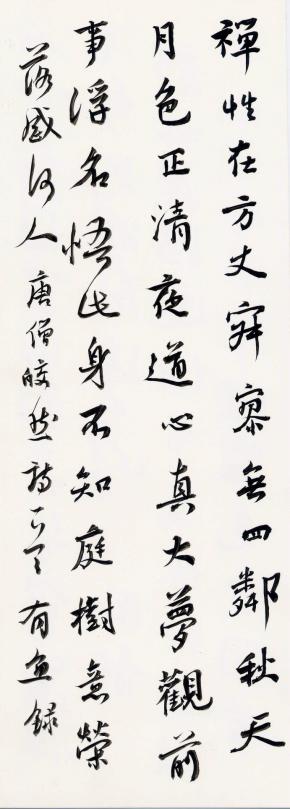 禪性在方丈寂寥無四鄰秋天
月色正清夜道心真大夢觀前
事浮名悟此身不知庭樹意榮
落感何人唐僧皎然詩有魚錄